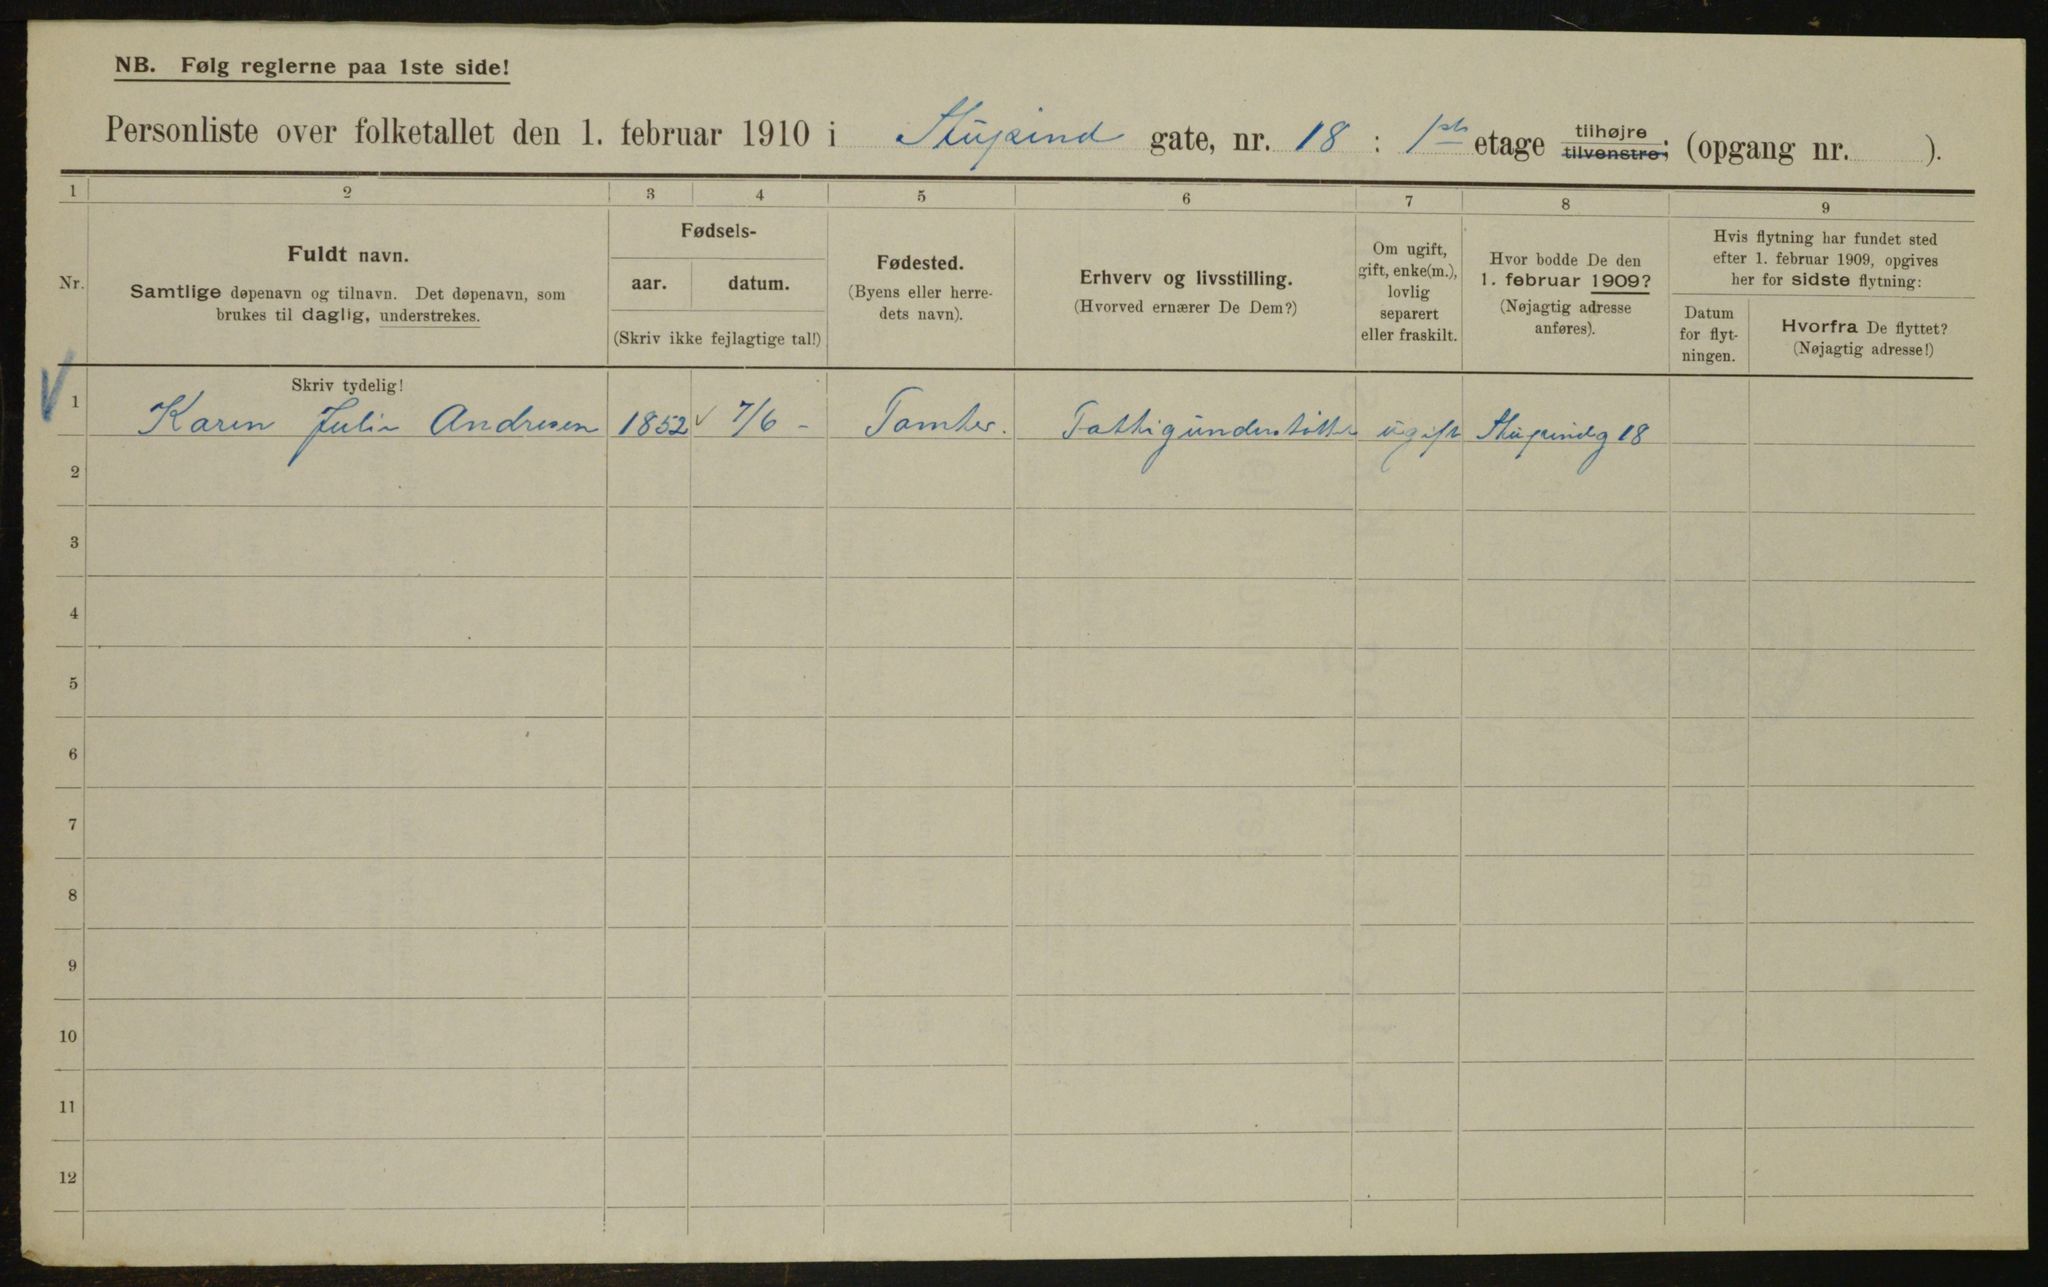 NB. Følg reglerne paa 1ste side!
Personliste over folketallet den 1. februar 1910 i Stupind gate, nr. 18 : 1ste etage tilhøjre tilvenstre; (opgang nr. ).
1 2 3 4 5 6 7 8 9
Nr.
Fuldt navn.
Samtlige døpenavn og tilnavn. Det døpenavn, som
brukes til daglig, understrekes.
Fødsels-
aar. datum.
(Skriv ikke fejlagtige tal!)
Fødested.
(Byens eller herre-
dets navn).
Erhverv og livsstilling.
(Hvorved ernærer De Dem?)
Om ugift,
gift, enke(m.),
lovlig
separert
eller fraskilt.
Hvor bodde De den
1. februar 1909?
(Nøjagtig adresse
anføres).
Hvis flytning har fundet sted
efter 1. februar 1909, opgives
her for sidste flytning:
Datum
for flyt-
ningen.
Hvorfra De flyttet?
(Nøjagtig adresse!)
Skriv tydelig!
1 Karen Julie Andresen 1852 7/6 - Tomter. Fattigunderstøttet ugift Stupindg 18
2
3
4
5
6
7
8
9
10
11
12